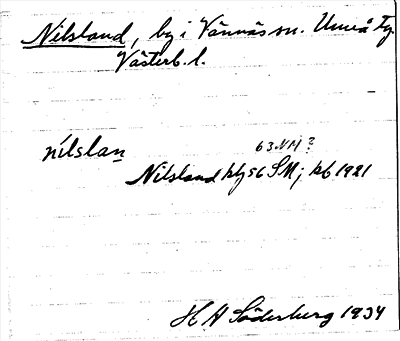 Nilsland, by i Vännäs sn. Umeå tg.
Västerb. l.
nilslan
63 NM?
Nilsland kbj 56 SM; kb 1921
H A Söderberg 1934